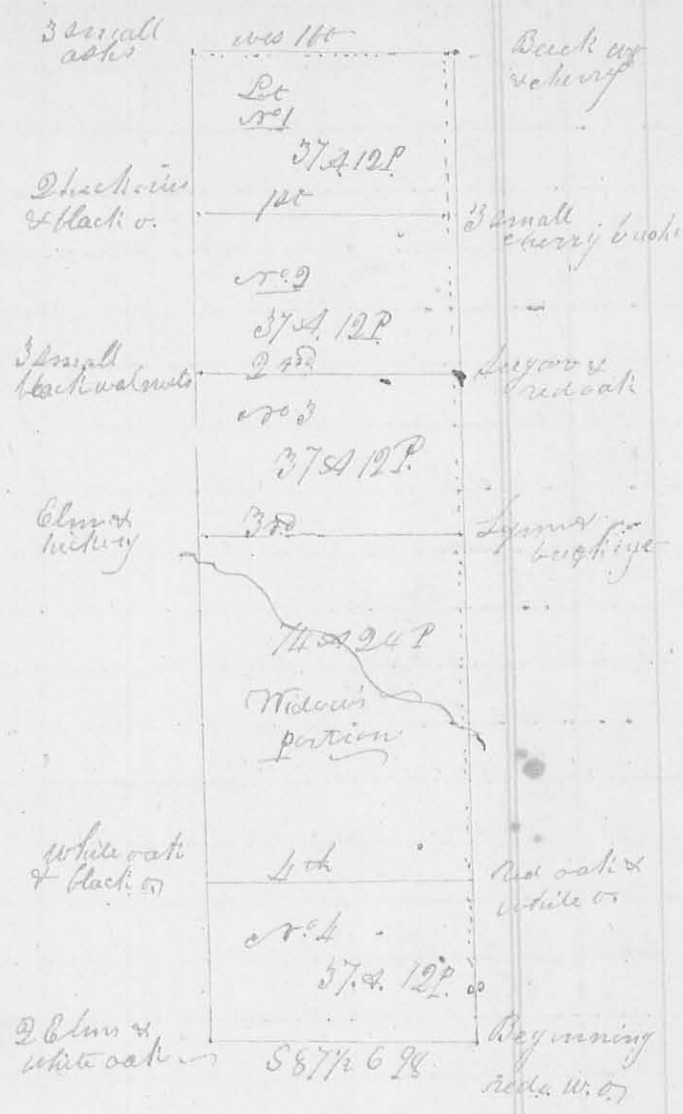 3 small
ashs
Buck ey
& cherry
Lot
No 1
37 A 12 P.
2 hickories
& black o.
1st
3 small
cherry bush
No. 2
37 A. 12 P.
3 small
black walnuts
2nd
Sugar &
red oak
No 3
37 A 12 P.
Elm &
hickory
3rd
Lynn &
buckeye
74 A 24 P
Widow's
portion
White oak
& black o
4th
Red oak &
white o
No. 4
37. A. 12 P.
2 Elms &
white oak
S 87½
Beginning
red o. W. o